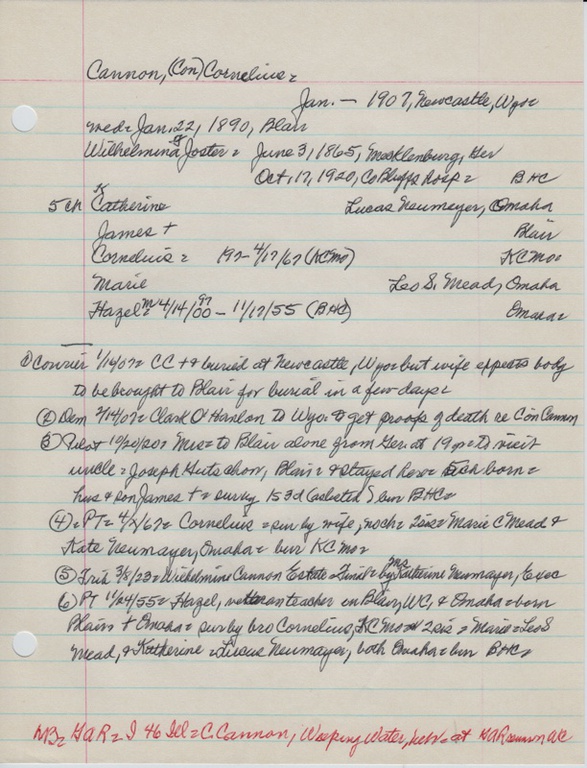 Cannon, (Con) Cornelius =
Jan. — 1907, Newcastle, Wyo=
med= Jan. 22, 1890, Blair
Wilhelmina Joster = June 3, 1865, Mecklenburg, Ger
Oct. 17, 1920, Co Bluffs Hosp = BHC
5 ch Catherine K Lucas Neumeyer, Omaha
James + Blair
Cornelius = 19?- 4/17/67 (KCMo) KCMo=
Marie Leo S. Mead, Omaha
Hazel= M 4/14/00 97 - 11/17/55 (BHC) Omaha=
① Courier 1/16/07= CC + & buried at Newcastle, Wyo= but wife expects body
to be brought to Blair for burial in a few days=
② Dem 2/14/07= Clark O'Hanlon to Wyo= to get proofs of death re Con Cannon
③ Pilot 10/20/20= Mrs= to Blair alone from Ger. at 19 = to visit
uncle = Joseph Hutschow, Blair = & stayed here = 5 ch born =
hus & son James + = surv by 1 s 3 d (as listed) bur BHC=
④ = PT= 4/ /67= Cornelius = sur by wife, no ch = 2 sis = Marie C Mead &
Kate Neumayer, Omaha = bur KC Mo=
⑤ Trib 3/8/23= Wilhelmine Cannon Estate = Final = by Mrs Katherine Neumayer, Exec
⑥ PT 11/24/55= Hazel, veteran teacher in Blair, WC, & Omaha = born
Blair + Omaha = sur by bro Cornelius, KC Mo = 2 sis = Marie = Leo S
Mead, & Katherine = Lucas Neumayer, both Omaha = bur BHC=
NB= GAR= I 46 Ill = C. Cannon, Weeping Water, Neb= at GAR